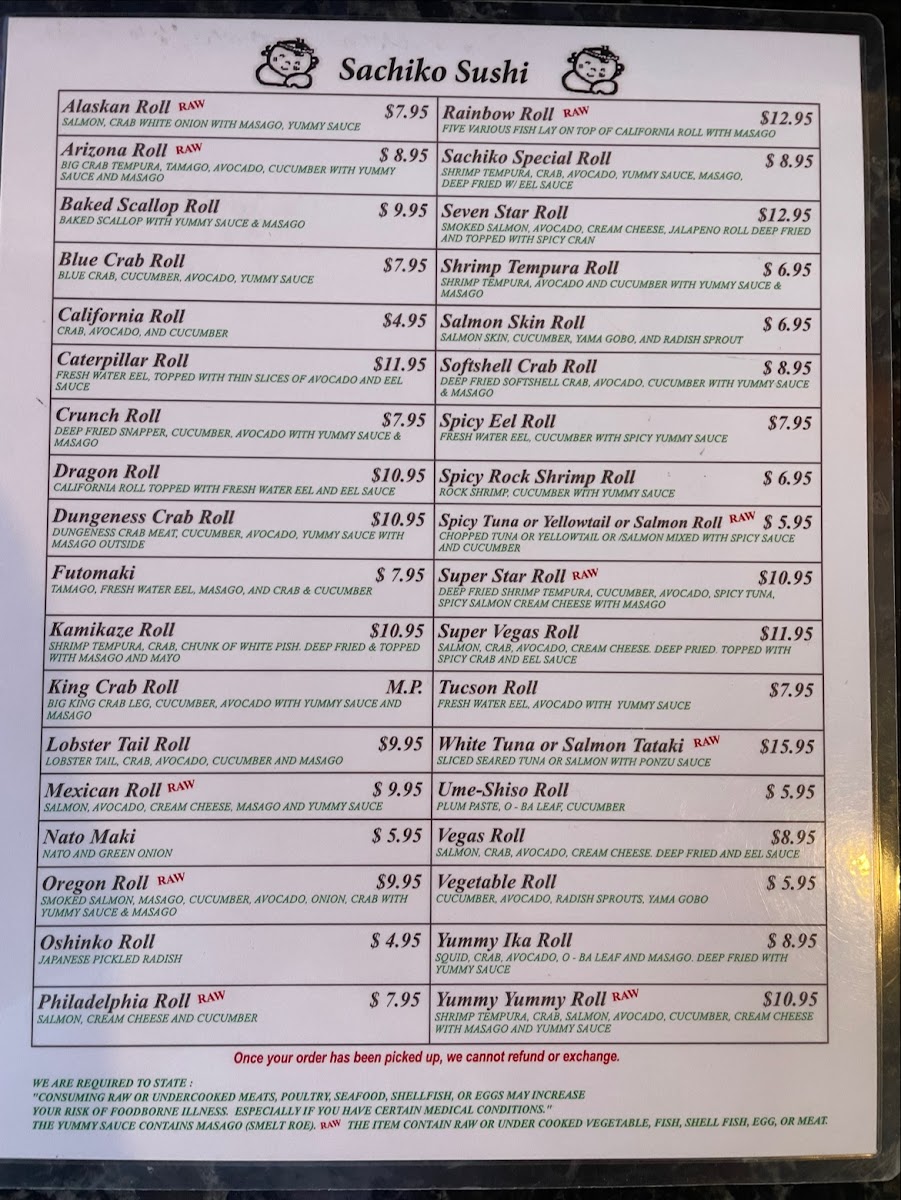 Sachiko Sushi
Alaskan Roll RAW $7.95
SALMON, CRAB WHITE ONION WITH MASAGO, YUMMY SAUCE
Arizona Roll RAW $ 8.95
BIG CRAB TEMPURA, TAMAGO, AVOCADO, CUCUMBER WITH YUMMY
SAUCE AND MASAGO
Baked Scallop Roll $ 9.95
BAKED SCALLOP WITH YUMMY SAUCE & MASAGO
Blue Crab Roll $7.95
BLUE CRAB, CUCUMBER, AVOCADO, YUMMY SAUCE
California Roll $4.95
CRAB, AVOCADO, AND CUCUMBER
Caterpillar Roll $11.95
FRESH WATER EEL, TOPPED WITH THIN SLICES OF AVOCADO AND EEL
SAUCE
Crunch Roll $7.95
DEEP FRIED SNAPPER, CUCUMBER, AVOCADO WITH YUMMY SAUCE &
MASAGO
Dragon Roll $10.95
CALIFORNIA ROLL TOPPED WITH FRESH WATER EEL AND EEL SAUCE
Dungeness Crab Roll $10.95
DUNGENESS CRAB MEAT, CUCUMBER, AVOCADO, YUMMY SAUCE WITH
MASAGO OUTSIDE
Futomaki $ 7.95
TAMAGO, FRESH WATER EEL, MASAGO, AND CRAB & CUCUMBER
Kamikaze Roll $10.95
SHRIMP TEMPURA, CRAB, CHUNK OF WHITE PISH. DEEP FRIED & TOPPED
WITH MASAGO AND MAYO
King Crab Roll M.P.
BIG KING CRAB LEG, CUCUMBER, AVOCADO WITH YUMMY SAUCE AND
MASAGO
Lobster Tail Roll $9.95
LOBSTER TAIL, CRAB, AVOCADO, CUCUMBER AND MASAGO
Mexican Roll RAW $ 9.95
SALMON, AVOCADO, CREAM CHEESE, MASAGO AND YUMMY SAUCE
Nato Maki $ 5.95
NATO AND GREEN ONION
Oregon Roll RAW $9.95
SMOKED SALMON, MASAGO, CUCUMBER, AVOCADO, ONION, CRAB WITH
YUMMY SAUCE & MASAGO
Oshinko Roll $ 4.95
JAPANESE PICKLED RADISH
Philadelphia Roll RAW $ 7.95
SALMON, CREAM CHEESE AND CUCUMBER
Rainbow Roll RAW $12.95
FIVE VARIOUS FISH LAY ON TOP OF CALIFORNIA ROLL WITH MASAGO
Sachiko Special Roll $ 8.95
SHRIMP TEMPURA, CRAB, AVOCADO, YUMMY SAUCE, MASAGO,
DEEP FRIED W/ EEL SAUCE
Seven Star Roll $12.95
SMOKED SALMON, AVOCADO, CREAM CHEESE, JALAPENO ROLL DEEP FRIED
AND TOPPED WITH SPICY CRAN
Shrimp Tempura Roll $ 6.95
SHRIMP TEMPURA, AVOCADO AND CUCUMBER WITH YUMMY SAUCE &
MASAGO
Salmon Skin Roll $ 6.95
SALMON SKIN, CUCUMBER, YAMA GOBO, AND RADISH SPROUT
Softshell Crab Roll $ 8.95
DEEP FRIED SOFTSHELL CRAB, AVOCADO, CUCUMBER WITH YUMMY SAUCE
& MASAGO
Spicy Eel Roll $7.95
FRESH WATER EEL, CUCUMBER WITH SPICY YUMMY SAUCE
Spicy Rock Shrimp Roll $ 6.95
ROCK SHRIMP, CUCUMBER WITH YUMMY SAUCE
Spicy Tuna or Yellowtail or Salmon Roll RAW $ 5.95
CHOPPED TUNA OR YELLOWTAIL OR /SALMON MIXED WITH SPICY SAUCE
AND CUCUMBER
Super Star Roll RAW $10.95
DEEP FRIED SHRIMP TEMPURA, CUCUMBER, AVOCADO, SPICY TUNA,
SPICY SALMON CREAM CHEESE WITH MASAGO
Super Vegas Roll $11.95
SALMON, CRAB, AVOCADO, CREAM CHEESE. DEEP PRIED. TOPPED WITH
SPICY CRAB AND EEL SAUCE
Tucson Roll $7.95
FRESH WATER EEL, AVOCADO WITH YUMMY SAUCE
White Tuna or Salmon Tataki RAW $15.95
SLICED SEARED TUNA OR SALMON WITH PONZU SAUCE
Ume-Shiso Roll $ 5.95
PLUM PASTE, O - BA LEAF, CUCUMBER
Vegas Roll $8.95
SALMON, CRAB, AVOCADO, CREAM CHEESE. DEEP FRIED AND EEL SAUCE
Vegetable Roll $ 5.95
CUCUMBER, AVOCADO, RADISH SPROUTS, YAMA GOBO
Yummy Ika Roll $ 8.95
SQUID, CRAB, AVOCADO, O - BA LEAF AND MASAGO. DEEP FRIED WITH
YUMMY SAUCE
Yummy Yummy Roll RAW $10.95
SHRIMP TEMPURA, CRAB, SALMON, AVOCADO, CUCUMBER, CREAM CHEESE
WITH MASAGO AND YUMMY SAUCE
Once your order has been picked up, we cannot refund or exchange.
WE ARE REQUIRED TO STATE :
"CONSUMING RAW OR UNDERCOOKED MEATS, POULTRY, SEAFOOD, SHELLFISH, OR EGGS MAY INCREASE
YOUR RISK OF FOODBORNE ILLNESS. ESPECIALLY IF YOU HAVE CERTAIN MEDICAL CONDITIONS."
THE YUMMY SAUCE CONTAINS MASAGO (SMELT ROE). RAW THE ITEM CONTAIN RAW OR UNDER COOKED VEGETABLE, FISH, SHELL FISH, EGG, OR MEAT.